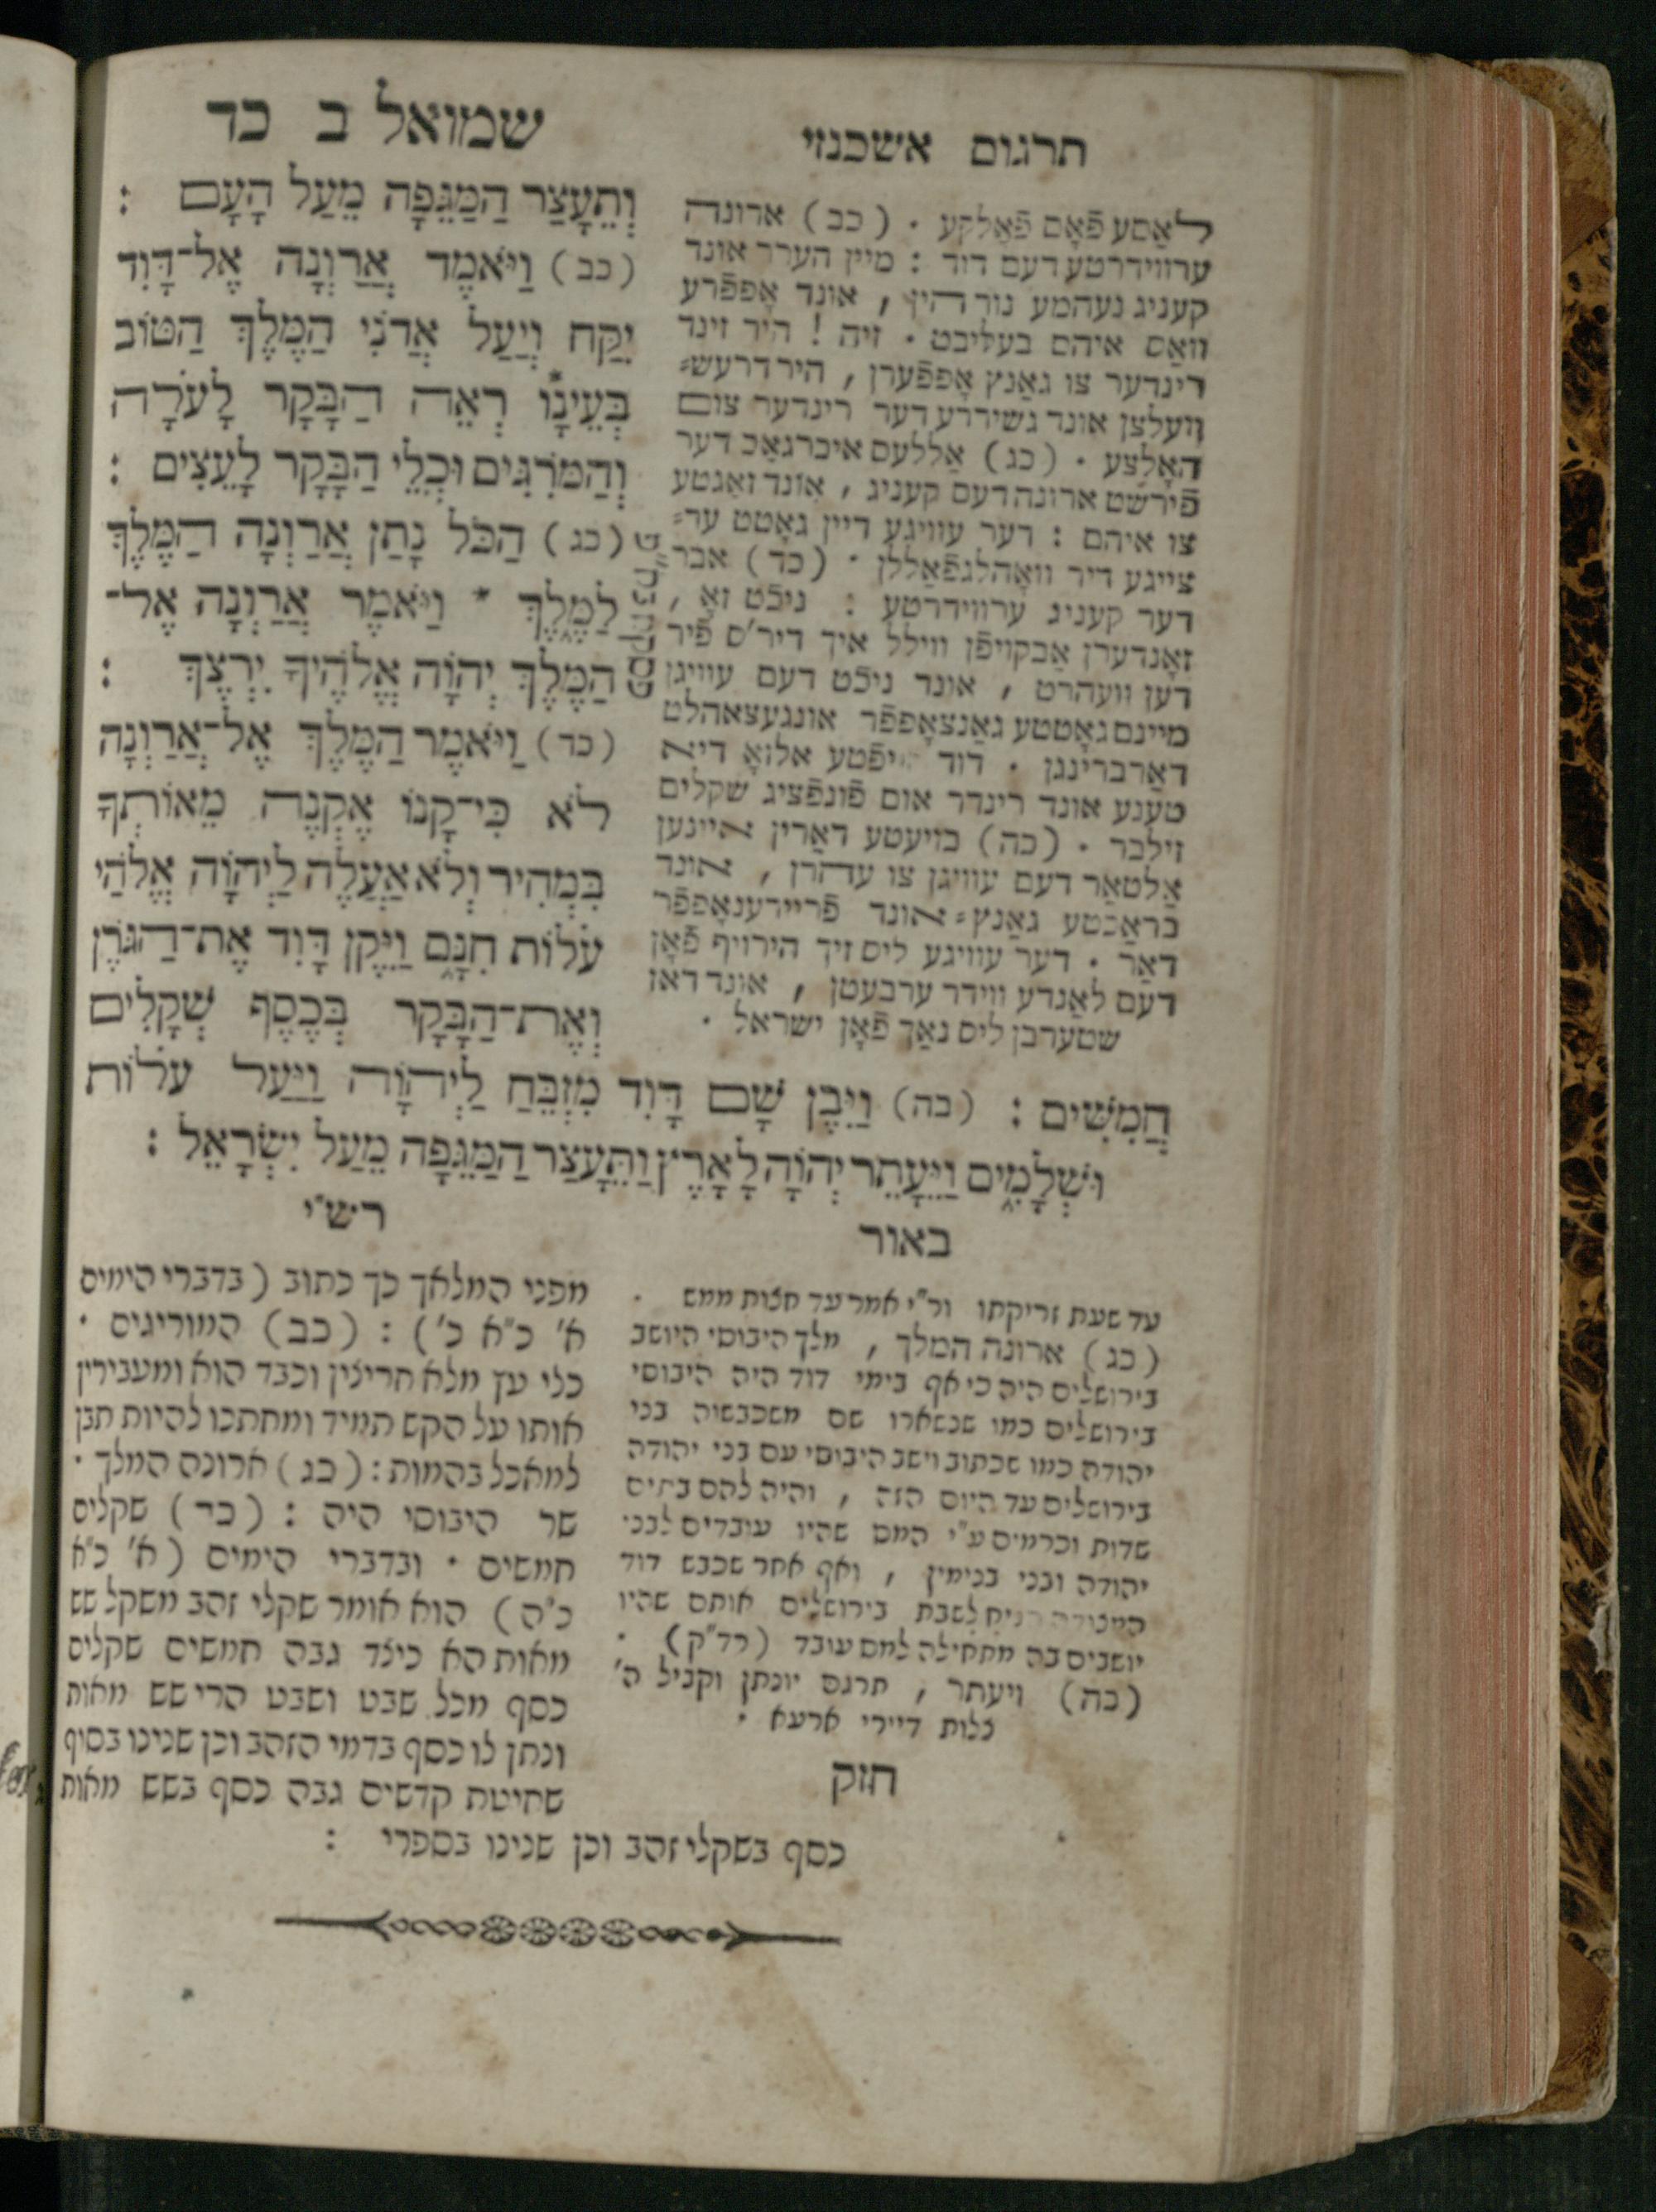 תרגום אשכנזי
שמואל ב כד
לאַסע פֿאָם פֿאָלקע . (כב) ארונה
ערווידרטע דעם דוד : מיין הערר אונד
קעניג נעהמע נור הין , אונד אָפפֿרע
וואַס איהם בעליבט . זיה ! היר זינד
רינדער צו גאַנץ אָפפֿערן , היר דרעש=
וועלצן אונד גשיררע דער רינדער צום
האָלצע . (כג) אַללעס איברגאַב דער
פֿירשט ארונה דעם קעניג , אונד זאַגטע
צו איהם : דער עוויגע דיין גאָטט ער=
צייגע דיר וואָהלגפֿאַללן . (כד) אבר
דער קעניג ערווידרטע : ניכֿט זאָ ,
זאָנדערן אַבקויפֿן ווילל איך דיר'ס פֿיר
דען ווערהט , אונד ניכֿט דעם עוויגן
מיינם גאָטטע גאַנצאָפפֿר אונגעצאהלט
דאַרברינגן . דוד אלזאָ דיא
טענע אונד רינדר אום פֿונפֿציג שקלים
זילבר . (כה) בויעטע דאַרין איינען
אַלטאַר דעם עוויגן צו עהרן , אונד
בראַכטע גאַנץ = אונד פֿריידענאָפפֿר
דאַר . דער עוויגע ליס זיך הירויף פֿאָן
דעם לאַנדע ווידר ערבעטן , אונד דאז
שטערבן ליס נאַך פֿאָן ישראל .
וְתֵעָצַר הַמַּגֵּפָה מֵעַל הָעָם :
(כב) וַיֹּאמֶר אֲרַוְנָה אֶל־דָּוִד
יִקַּח וְיַעַל אֲדֹנִי הַמֶּלֶךְ הַטּוֹב
בְּעֵינָ֑ו רְאֵה הַבָּקָר לָעֹלָה
וְהַמֹּרִגִּים וּכְלֵי הַבָּקָר לָעֵצִים :
(כג) הַכֹּל נָתַן אֲרַוְנָה הַמֶּלֶךְ
לַמֶּ֑לֶךְ * וַיֹּאמֶר אֲרַוְנָה אֶל־
הַמֶּלֶךְ יְהוָֹה אֱלֹהֶיךָ יִרְצֶךָ :
(כד) וַיֹּאמֶר הַמֶּלֶךְ אֶל־אֲרַוְנָה
לֹא כִּי־קָנוֹ אֶקְנֶה מֵאוֹתְךָ
בִּמְחִיר וְלֹא אַעֲלֶה לַיהוָֹה אֱלֹהַי
עֹלוֹת חִנָּ֑ם וַיִּקֶן דָּוִד אֶת־הַגֹּרֶן
וְאֶת־הַבָּקָר בְּכֶסֶף שְׁקָלִים
חֲמִשִּׁים : (כה) וַיִּבֶן שָׁם דָּוִד מִזְבֵּחַ לַיהוָֹה וַיַּעַל עֹלוֹת
וּשְׁלָמִ֑ים וַיֵּעָתֵר יְהוָֹה לָאָרֶץ וַתֵּעָצַר הַמַּגֵּפָה מֵעַל יִשְׂרָאֵל :
באור
עד שעת זריקתו ור"י אמר עד חצות ממש .
(כג) ארונה המלך , מלך היבוסי היושב
בירושלים היה כי אף בימי דוד היה היבוסי
בירושלים כמו שנשארו שם משכבשוה בני
יהודה כמו שכתוב וישב היבוסי עם בני יהודה
בירושלים עד היום הזה , והיה להם בתים
שדות וכרמים ע"י המס שהיו עובדים לבני
יהודה ובני בנימין , ואף אחר שכבש דוד
המצודה הניח לשבת בירושלים אותם שהיו
יושבים בה מתחילה למס עובד (רד"ק) .
(כה) ויעתר , תרגם יונתן וקביל ה'
צלות דיירי ארעא .
חזק
רש"י
מפני המלאך כך כתוב (בדברי הימים
א' כ"א כ') : (כב) המוריגים .
כלי עץ מלא חריצין וכבד הוא ומעבירין
אותו על הקש תמיד ומחתכו להיות תבן
למאכל בהמות : (כג) ארונה המלך .
שר היבוסי היה : (כד) שקלים
חמשים . ובדברי הימים (א' כ"א
כ"ה) הוא אומר שקלי זהב משקל שש
מאות הא כיצד גבה חמשים שקלים
כסף מכל שבט ושבט הרי שש מאות
ונתן לו כסף בדמי הזהב וכן שנינו בסוף
שחיטת קדשים גבה כסף בשש מאות
כסף בשקלי זהב וכן שנינו בספרי :